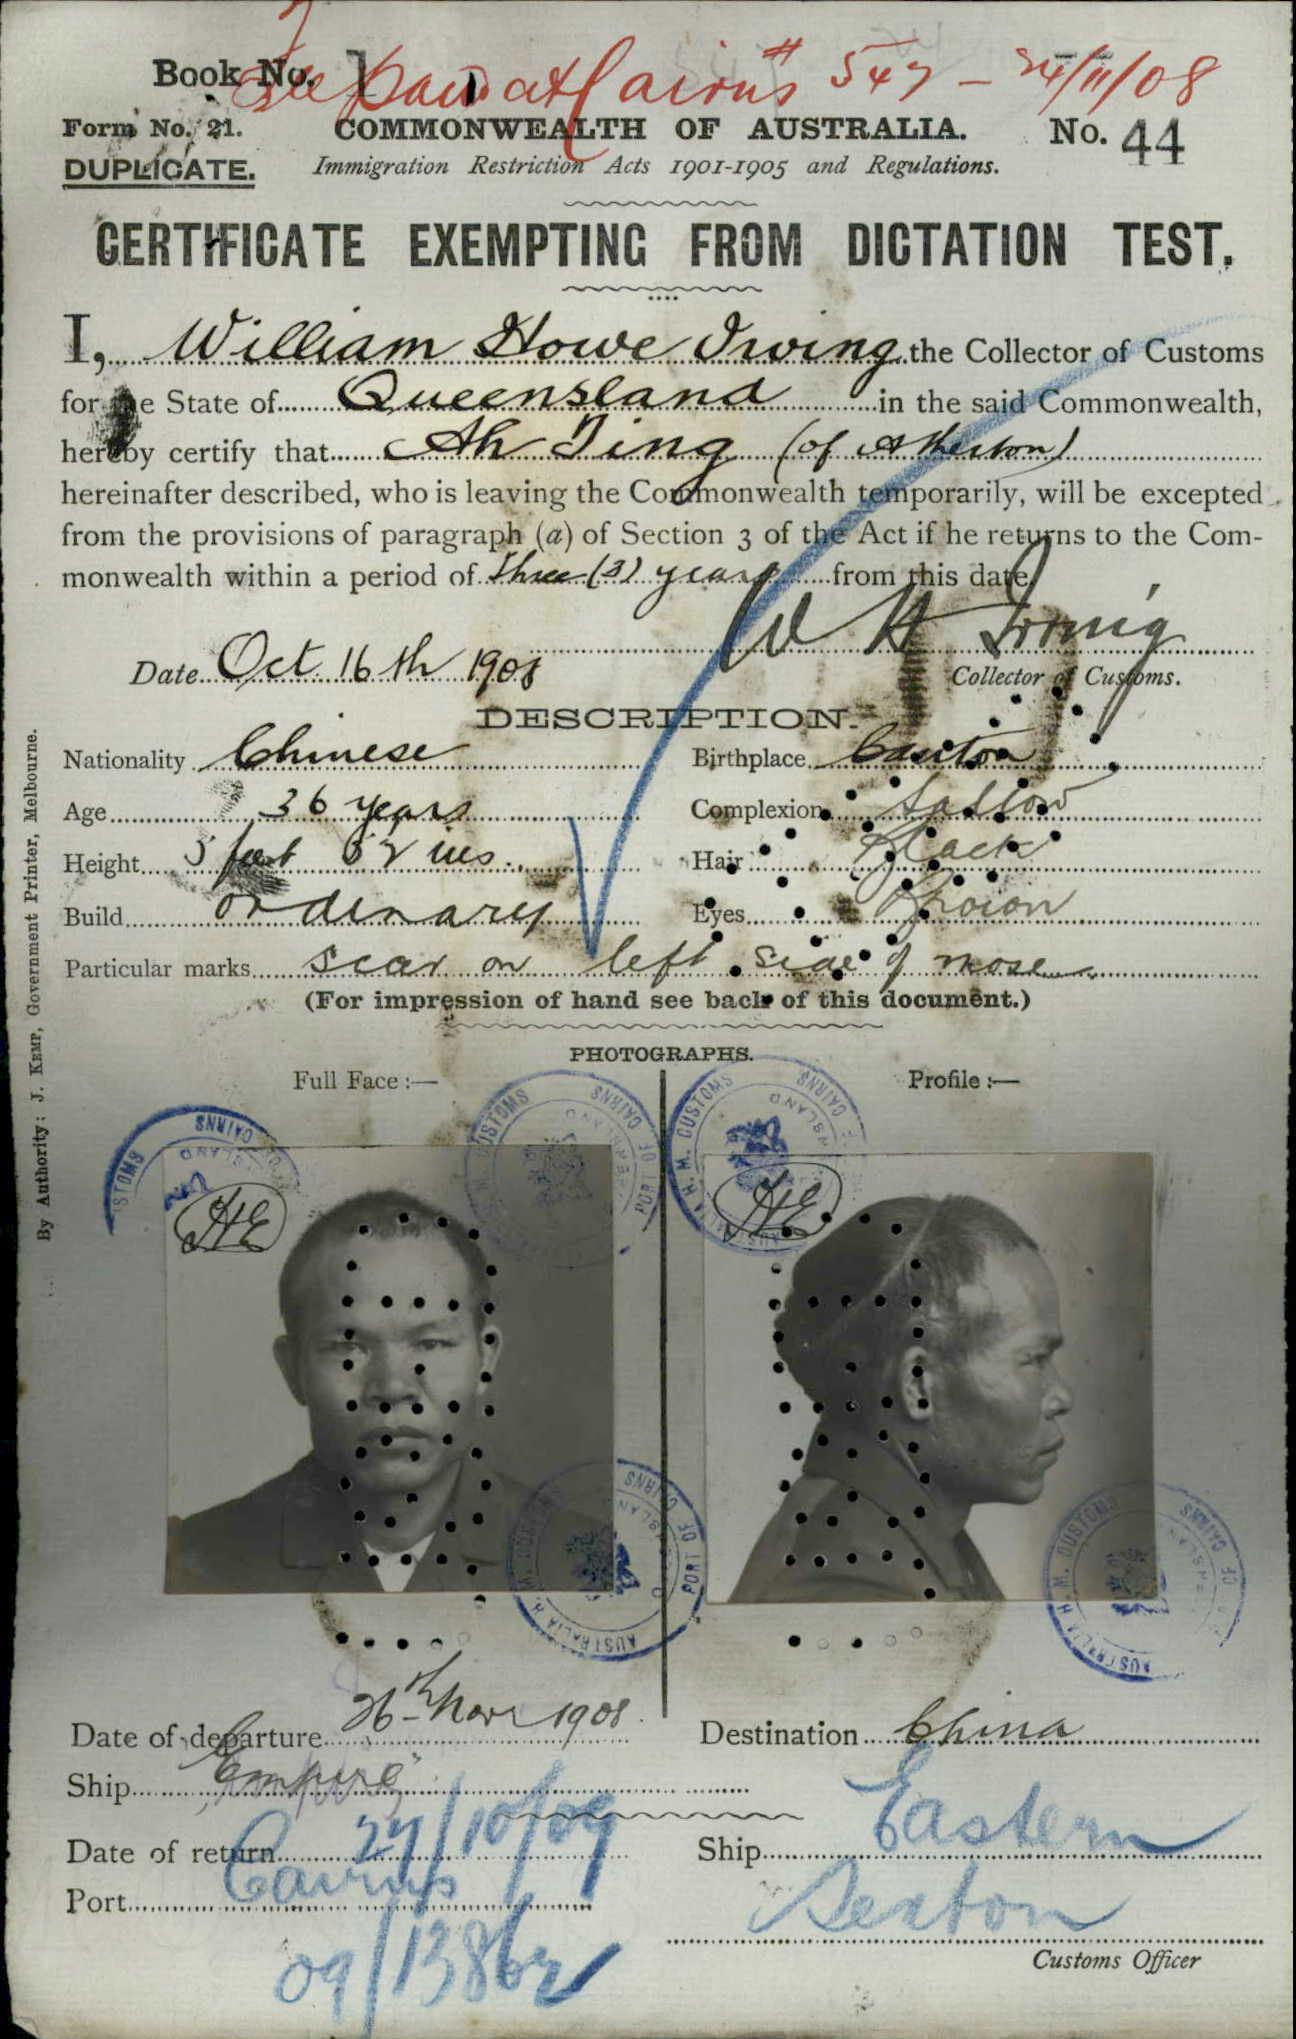 Book No. 1
Fee paid at Cairns # 547 - 24/11/08
Form No. 21.
COMMONWEALTH OF AUSTRALIA.
No. 44
DUPLICATE.
Immigration Restriction Acts 1901-1905 and Regulations.
CERTIFICATE EXEMPTING FROM DICTATION TEST.
I, William Howe Irving the Collector of Customs
for the State of Queensland in the said Commonwealth,
hereby certify that Ah Ting (of Atherton)
hereinafter described, who is leaving the Commonwealth temporarily, will be excepted
from the provisions of paragraph (a) of Section 3 of the Act if he returns to the Com-
monwealth within a period of three (3) years from this date.
W H Irving
Date Oct. 16th 1908
Collector of Customs.
DESCRIPTION.
Nationality Chinese
Birthplace Canton
Age 36 years
Complexion Sallow
Height 5 feet ins.
Hair Black
Build ordinary
Eyes Brown
Particular marks scar on left side of nose
(For impression of hand see back of this document.)
PHOTOGRAPHS.
Full Face :—
Profile :—
HE
HE
H. M. CUSTOMS PORT OF CAIRNS
H. M. CUSTOMS CAIRNS
AUSTRALIA
Date of departure 26th Novr 1908
Destination China
Ship "Empire"
Date of return 27/10/09
Ship Eastern
Port Cairns
Sexton
Customs Officer
09/13862
By Authority: J. KEMP, Government Printer, Melbourne.